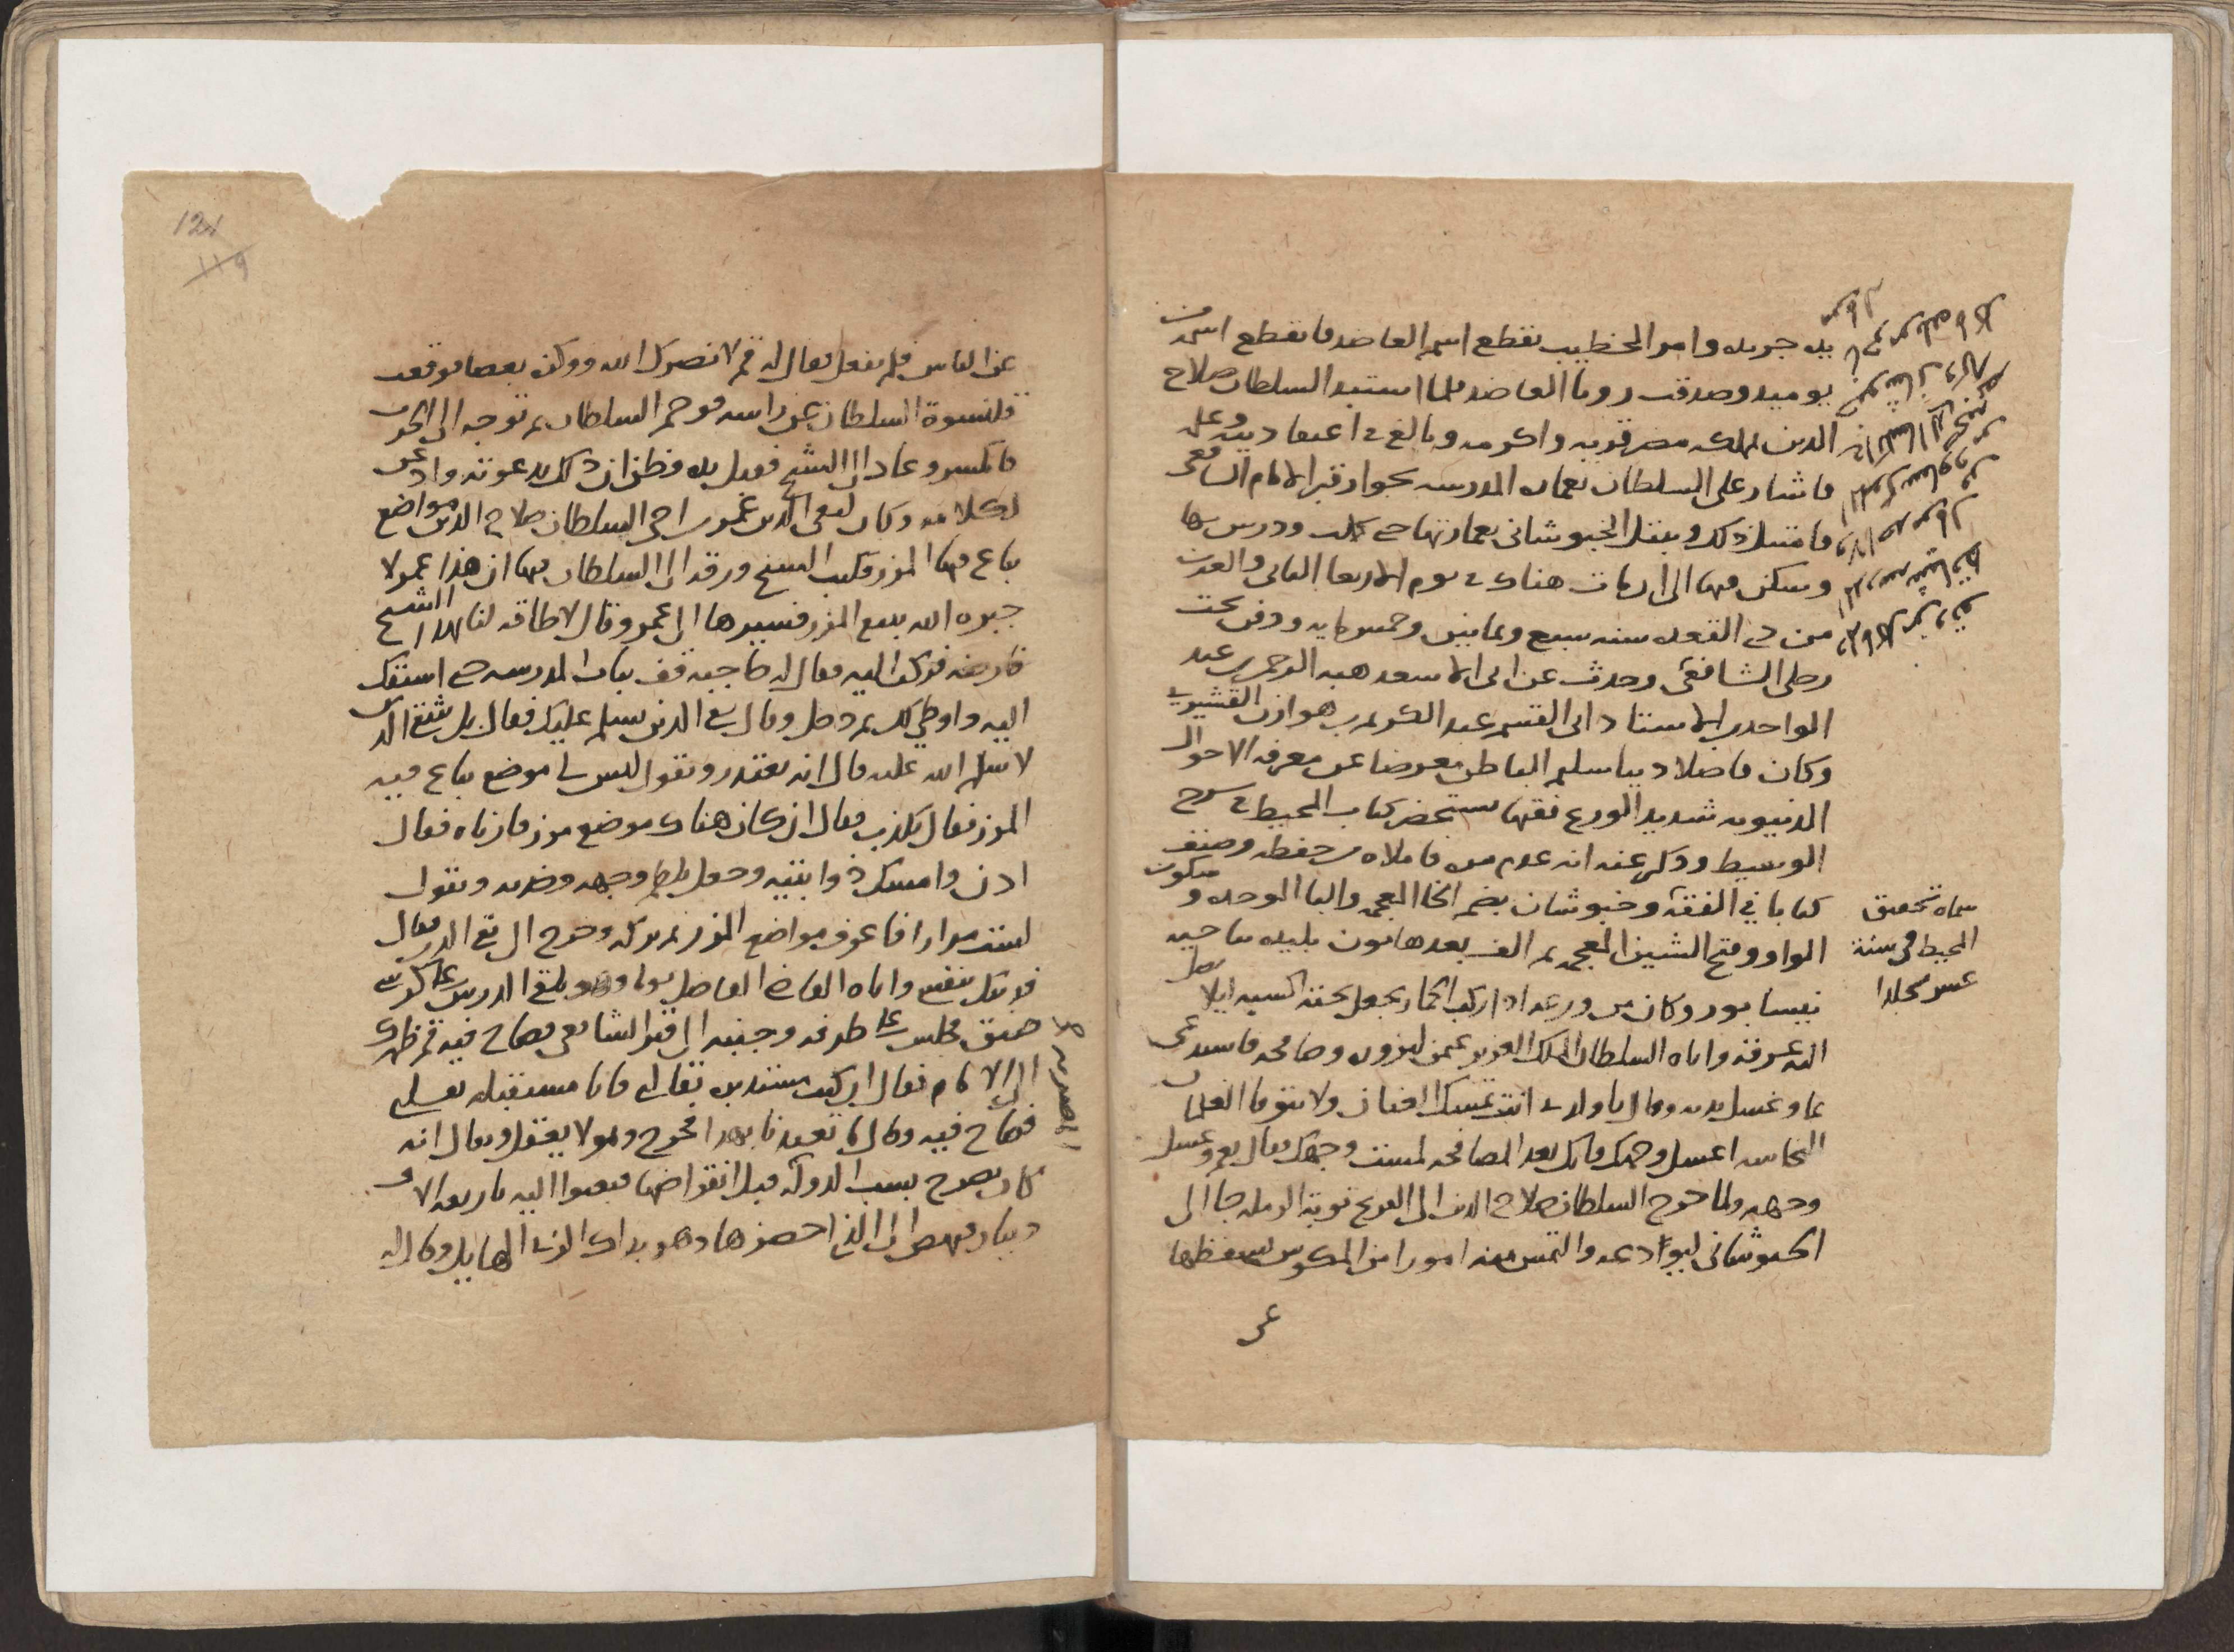 بيده جريده وامر الخطيب بقطع اسم العاضد فانقطع اسمه من
يوميد وصدقت رويا العاضد فلما استبد السلطان صلاح
الدين بملك مصر قربه واكرمه وبالغ في اعتقاد دينه وعلمه
فاشار على السلطان بعماره المدرسه بجوار قبر الامام الشافعي
فامتثل ذلك وبنفل الخبوشاني بعمارتها حتى كملت ودرس بها
وسكن فيها الى ان مات هناك في يوم الاربعا الثاني والعشرين
من ذي القعده سنه سبع وثمانين وخمسمايه ودفن تحت
رجلي الشافعي وحدث عن ابى الاسعد هبه الرحمن بن عبد
الواحد بن الاستاد ابى القسم عبد الكريم بن هوازن القشيري
وكان فاضلا دينا سليم الباطن معرضا عن معرفه الاحوال
الدنيويه شديد الورع فقيها يستحضر كتاب المحيط في شرح
الوسيط وذكر عنه انه عدم منه فاملاه من حفظه وصنف
كتابا في الفقه وخبوشان بضم الخا المعجمه والبا الموحده وسكون
الواو وفتح الشين المعجمه ثم الف بعدها نون بليده بناحيه
نيسابور وكان من ورعه اذا ركب الحمار يجعل تحته اكسيه ليلا يصل
اليه عرقه واتاه السلطان الملك العزيز عثمن ليزوره وصافحه فاستدعى
بما وغسل يديه وقال يا ولدي انت تمسك العنان ولا يتوقا الغلمان
النجاسه اغسل وجهك فانك بعد المصافحه لمست وجهك فقال نعم وغسل
وجهه ولما خرج السلطان صلاح الدين الى الفرنج نوبة الرمله جا الى
الخبوشاني ليوادعه والتمس منه امورا من المكوس يسقطها
سماه تحقيق
المحيط في ستة
عشر مجلدا
عن
124
١١٩
عن الناس فلم يفعل فقال له قم لا نصرك الله ووكزه بعصا فوقعت
قلنسوة السلطان عن راسه فوجم السلطان ثم توجه الى الحرب
فانكسر وعاد الى الشيخ فقبل يده وظن ان ذلك بدعوته واذعن
لكلامه وكان لتقي الدين عمر بن اخي السلطان صلاح الدين مواضع
يباع فيها المزر فكتب الشيخ ورقه الى السلطان فيها ان هذا عمر لا
جبره الله يبيع المزر فسيرها الى عمر وقال لا طاقه لنا بهذا الشيخ
فارضه فركب اليه فقال له حاجبه قف بباب المدرسه حتى اسبقك
اليه واوطي لك ثم دخل وقال تقي الدين يسلم عليك فقال بل شقي الدين
لا سلم الله عليه قال انه يعتذر ويقول ليس لي موضع يباع فيه
المزر فقال يكذب فقال ان كان هناك موضع مزر فارناه فقال
ادن وامسك ذوابتيه وجعل يلطم وجهه وخديه ويقول
لست مزارا فاعرف مواضع المزر ثم تركه وخرج الى تقي الدين فقال
فديتك بنفسي واتاه القاضي الفاضل يوما وهو يلقي الدرس على كرسي
ضيق فجلس على طرفه وجنبه الى قبر الشافعي فصاح فيه قم ظهرك
الى الامام فقال ان كنت مستدبره بقالبي فانا مستقبله بقلبي
فصاح فيه وقال ما تعبدنا بهذا فخرج وهو لا يعقل ويقال انه
كان يصرح بسب الدوله قبل انقراضها فبعثوا اليه باربعه الاف
دينار فنهض الى الذي احضرها وهو بداك الزي الهايل وقال له